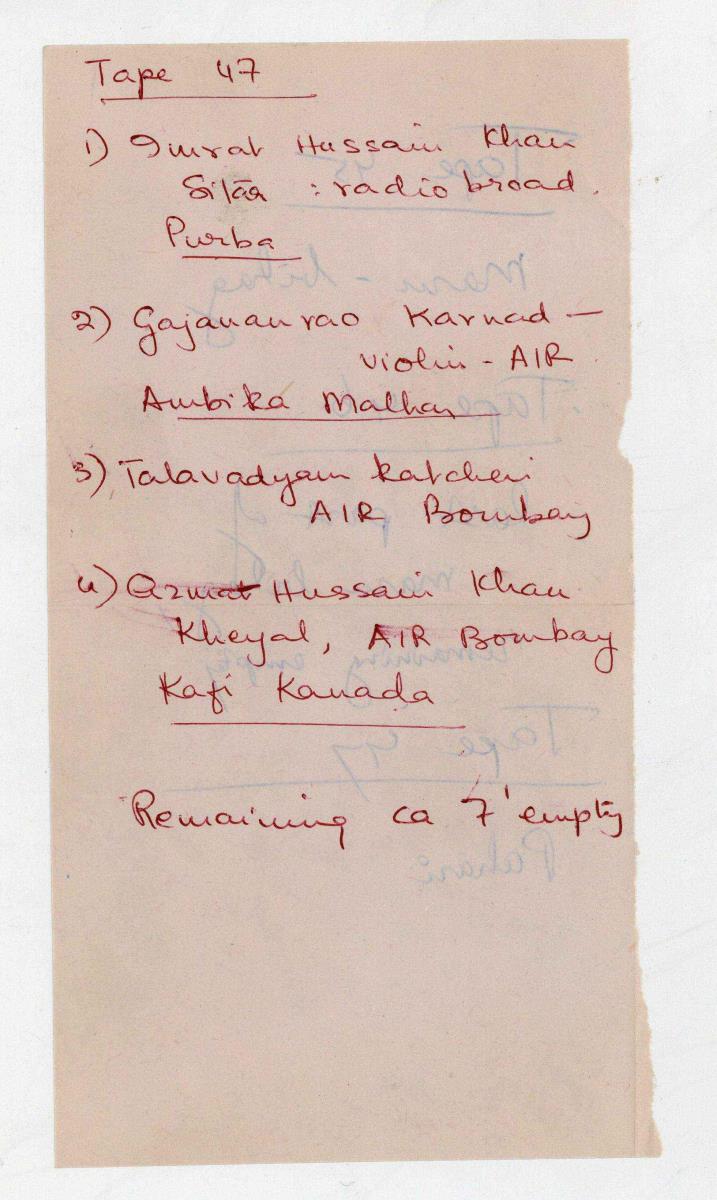 Tape 47
1) Imrat Hussain Khan
Sitār : radio broad.
Purba
2) Gajananrao Karnad –
violin - AIR
Ambika Malhar
3) Talavadyam katcheri
AIR Bombay
4) Azmat Hussain Khan
Kheyal, AIR Bombay
Kafi Kanada
Remaining ca 7' empty